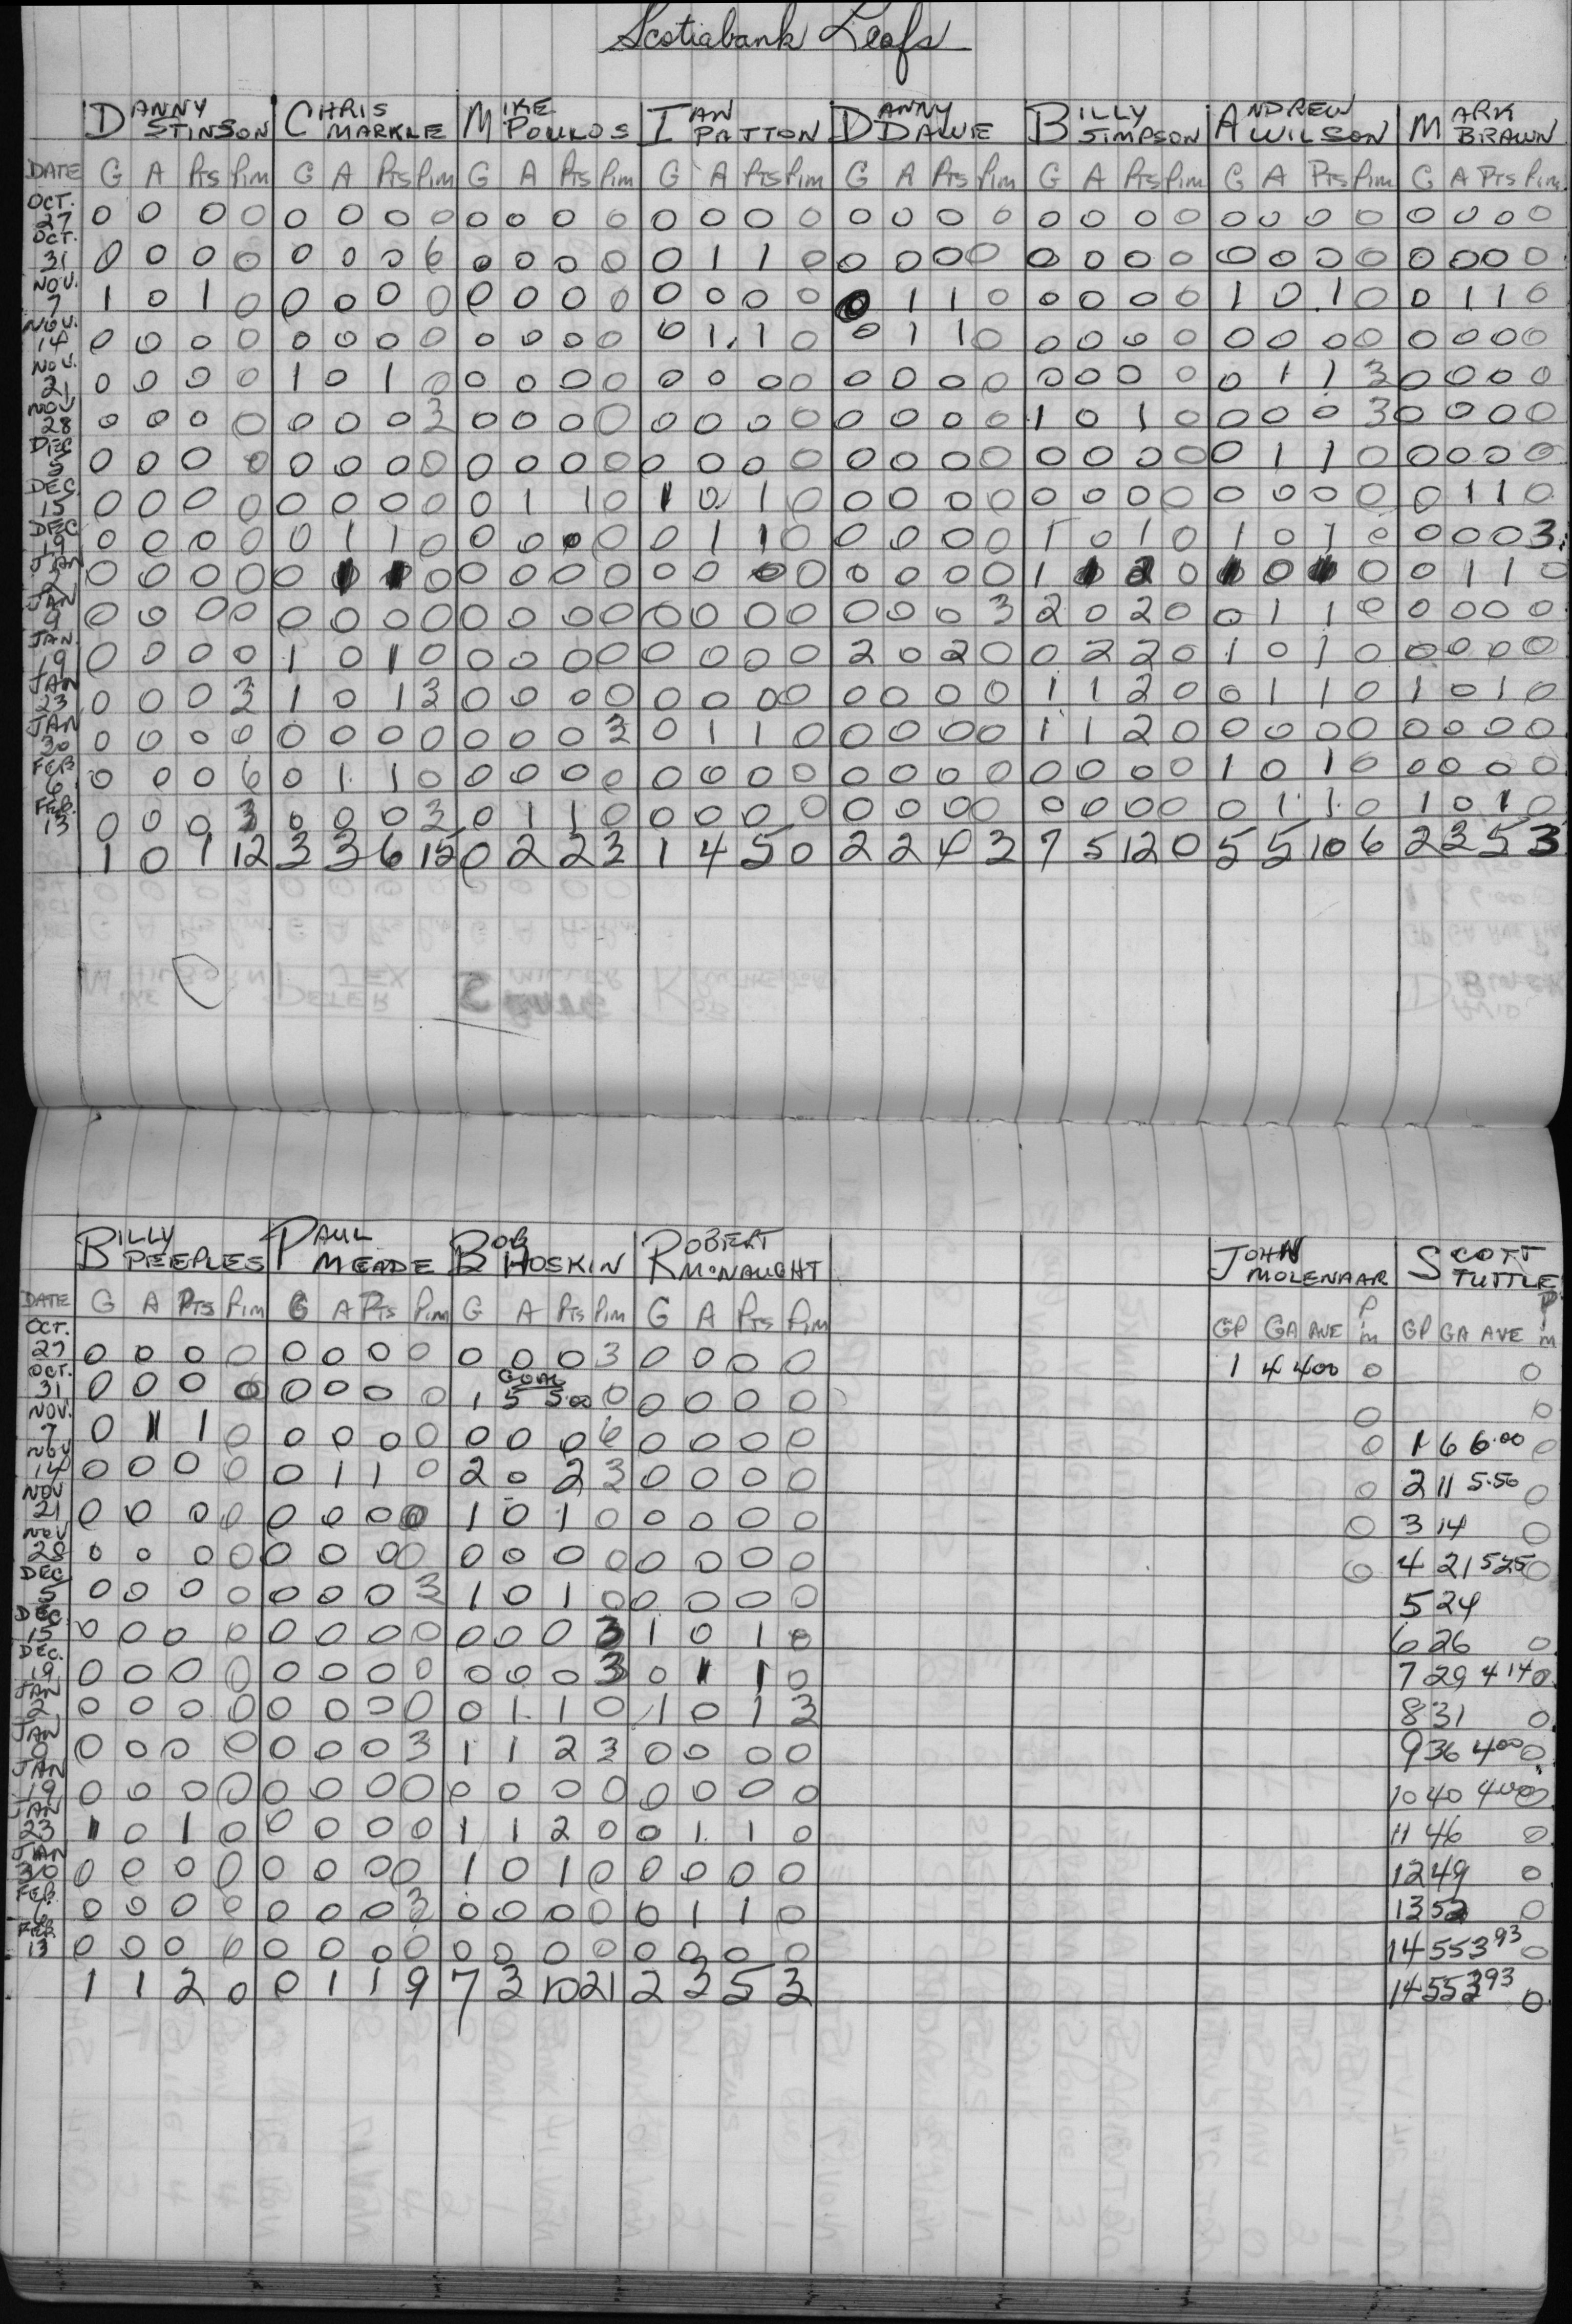 Scotiabank Leafs
DANNY STINSON CHRIS MARKLE MIKE POULOS IAN PATTON DANNY DAWE BILLY SIMPSON ANDREW WILSON MARK BRAWN
DATE G A Pts Pim G A Pts Pim G A Pts Pim G A Pts Pim G A Pts Pim G A Pts Pim G A Pts Pim G A Pts Pim
OCT. 27 0 0 0 0 0 0 0 0 0 0 0 0 0 0 0 0 0 0 0 0 0 0 0 0 0 0 0 0 0 0 0 0
OCT. 31 0 0 0 0 0 0 0 6 0 0 0 0 0 1 1 0 0 0 0 0 0 0 0 0 0 0 0 0 0 0 0 0
NOV. 7 1 0 1 0 0 0 0 0 0 0 0 0 0 0 0 0 0 1 1 0 0 0 0 0 1 0 1 0 0 1 1 0
NOV. 14 0 0 0 0 0 0 0 0 0 0 0 0 0 1 1 0 0 1 1 0 0 0 0 0 0 0 0 0 0 0 0 0
NOV. 21 0 0 0 0 1 0 1 0 0 0 0 0 0 0 0 0 0 0 0 0 0 0 0 0 0 1 1 3 0 0 0 0
NOV 28 0 0 0 0 0 0 0 3 0 0 0 0 0 0 0 0 0 0 0 0 1 0 1 0 0 0 0 3 0 0 0 0
DEC 5 0 0 0 0 0 0 0 0 0 0 0 0 0 0 0 0 0 0 0 0 0 0 0 0 0 1 1 0 0 0 0 0
DEC 15 0 0 0 0 0 0 0 0 0 1 1 0 1 0 1 0 0 0 0 0 0 0 0 0 0 0 0 0 0 1 1 0
DEC 19 0 0 0 0 0 1 1 0 0 0 0 0 0 1 1 0 0 0 0 0 1 0 1 0 1 0 1 0 0 0 0 3
JAN 2 0 0 0 0 0 1 1 0 0 0 0 0 0 0 0 0 0 0 0 0 1 1 2 0 1 0 1 0 0 1 1 0
JAN 9 0 0 0 0 0 0 0 0 0 0 0 0 0 0 0 0 0 0 0 3 2 0 2 0 0 1 1 0 0 0 0 0
JAN. 19 0 0 0 0 1 0 1 0 0 0 0 0 0 0 0 0 2 0 2 0 0 2 2 0 1 0 1 0 0 0 0 0
JAN 23 0 0 0 3 1 0 1 3 0 0 0 0 0 0 0 0 0 0 0 0 1 1 2 0 0 1 1 0 1 0 1 0
JAN 30 0 0 0 0 0 0 0 0 0 0 0 3 0 1 1 0 0 0 0 0 1 1 2 0 0 0 0 0 0 0 0 0
FEB 6 0 0 0 6 0 1 1 0 0 0 0 0 0 0 0 0 0 0 0 0 0 0 0 0 1 0 1 0 0 0 0 0
FEB. 13 0 0 0 3 0 0 0 3 0 1 1 0 0 0 0 0 0 0 0 0 0 0 0 0 0 1 1 0 1 0 1 0
1 0 1 12 3 3 6 15 0 2 2 3 1 4 5 0 2 2 4 3 7 5 12 0 5 5 10 6 2 3 5 3
BILLY PEEPLES PAUL MEADE BOB HOSKIN ROBERT McNAUGHT JOHN MOLENAAR SCOTT TUTTLE
DATE G A Pts Pim G A Pts Pim G A Pts Pim G A Pts Pim GP GA AVE Pim GP GA AVE Pim
OCT. 27 0 0 0 0 0 0 0 0 0 0 0 3 0 0 0 0 1 4 4.00 0 0
GOAL
OCT. 31 0 0 0 0 0 0 0 0 1 5 5.00 0 0 0 0 0 0 0
NOV. 7 0 1 1 0 0 0 0 0 0 0 0 6 0 0 0 0 0 1 6 6.00 0
NOV 14 0 0 0 0 0 1 1 0 2 0 2 3 0 0 0 0 0 2 11 5.50 0
NOV 21 0 0 0 0 0 0 0 0 1 0 1 0 0 0 0 0 0 3 14 0
NOV 28 0 0 0 0 0 0 0 0 0 0 0 0 0 0 0 0 0 4 21 5.25 0
DEC 5 0 0 0 0 0 0 0 3 1 0 1 0 0 0 0 0 5 24
DEC. 15 0 0 0 0 0 0 0 0 0 0 0 3 1 0 1 0 6 26 0
DEC. 19 0 0 0 0 0 0 0 0 0 0 0 3 0 1 1 0 7 29 4.14 0
JAN 2 0 0 0 0 0 0 0 0 0 1 1 0 1 0 1 3 8 31 0
JAN 9 0 0 0 0 0 0 0 3 1 1 2 3 0 0 0 0 9 36 4.00 0
JAN 19 0 0 0 0 0 0 0 0 0 0 0 0 0 0 0 0 10 40 4.00 0
JAN 23 1 0 1 0 0 0 0 0 1 1 2 0 0 1 1 0 11 46 0
JAN 30 0 0 0 0 0 0 0 0 1 0 1 0 0 0 0 0 12 49 0
FEB. 6 0 0 0 0 0 0 0 3 0 0 0 0 0 1 1 0 13 52 0
FEB. 13 0 0 0 0 0 0 0 0 0 0 0 0 0 0 0 0 14 55 3.93 0
1 1 2 0 0 1 1 9 7 3 10 21 2 3 5 3 14 55 3.93 0